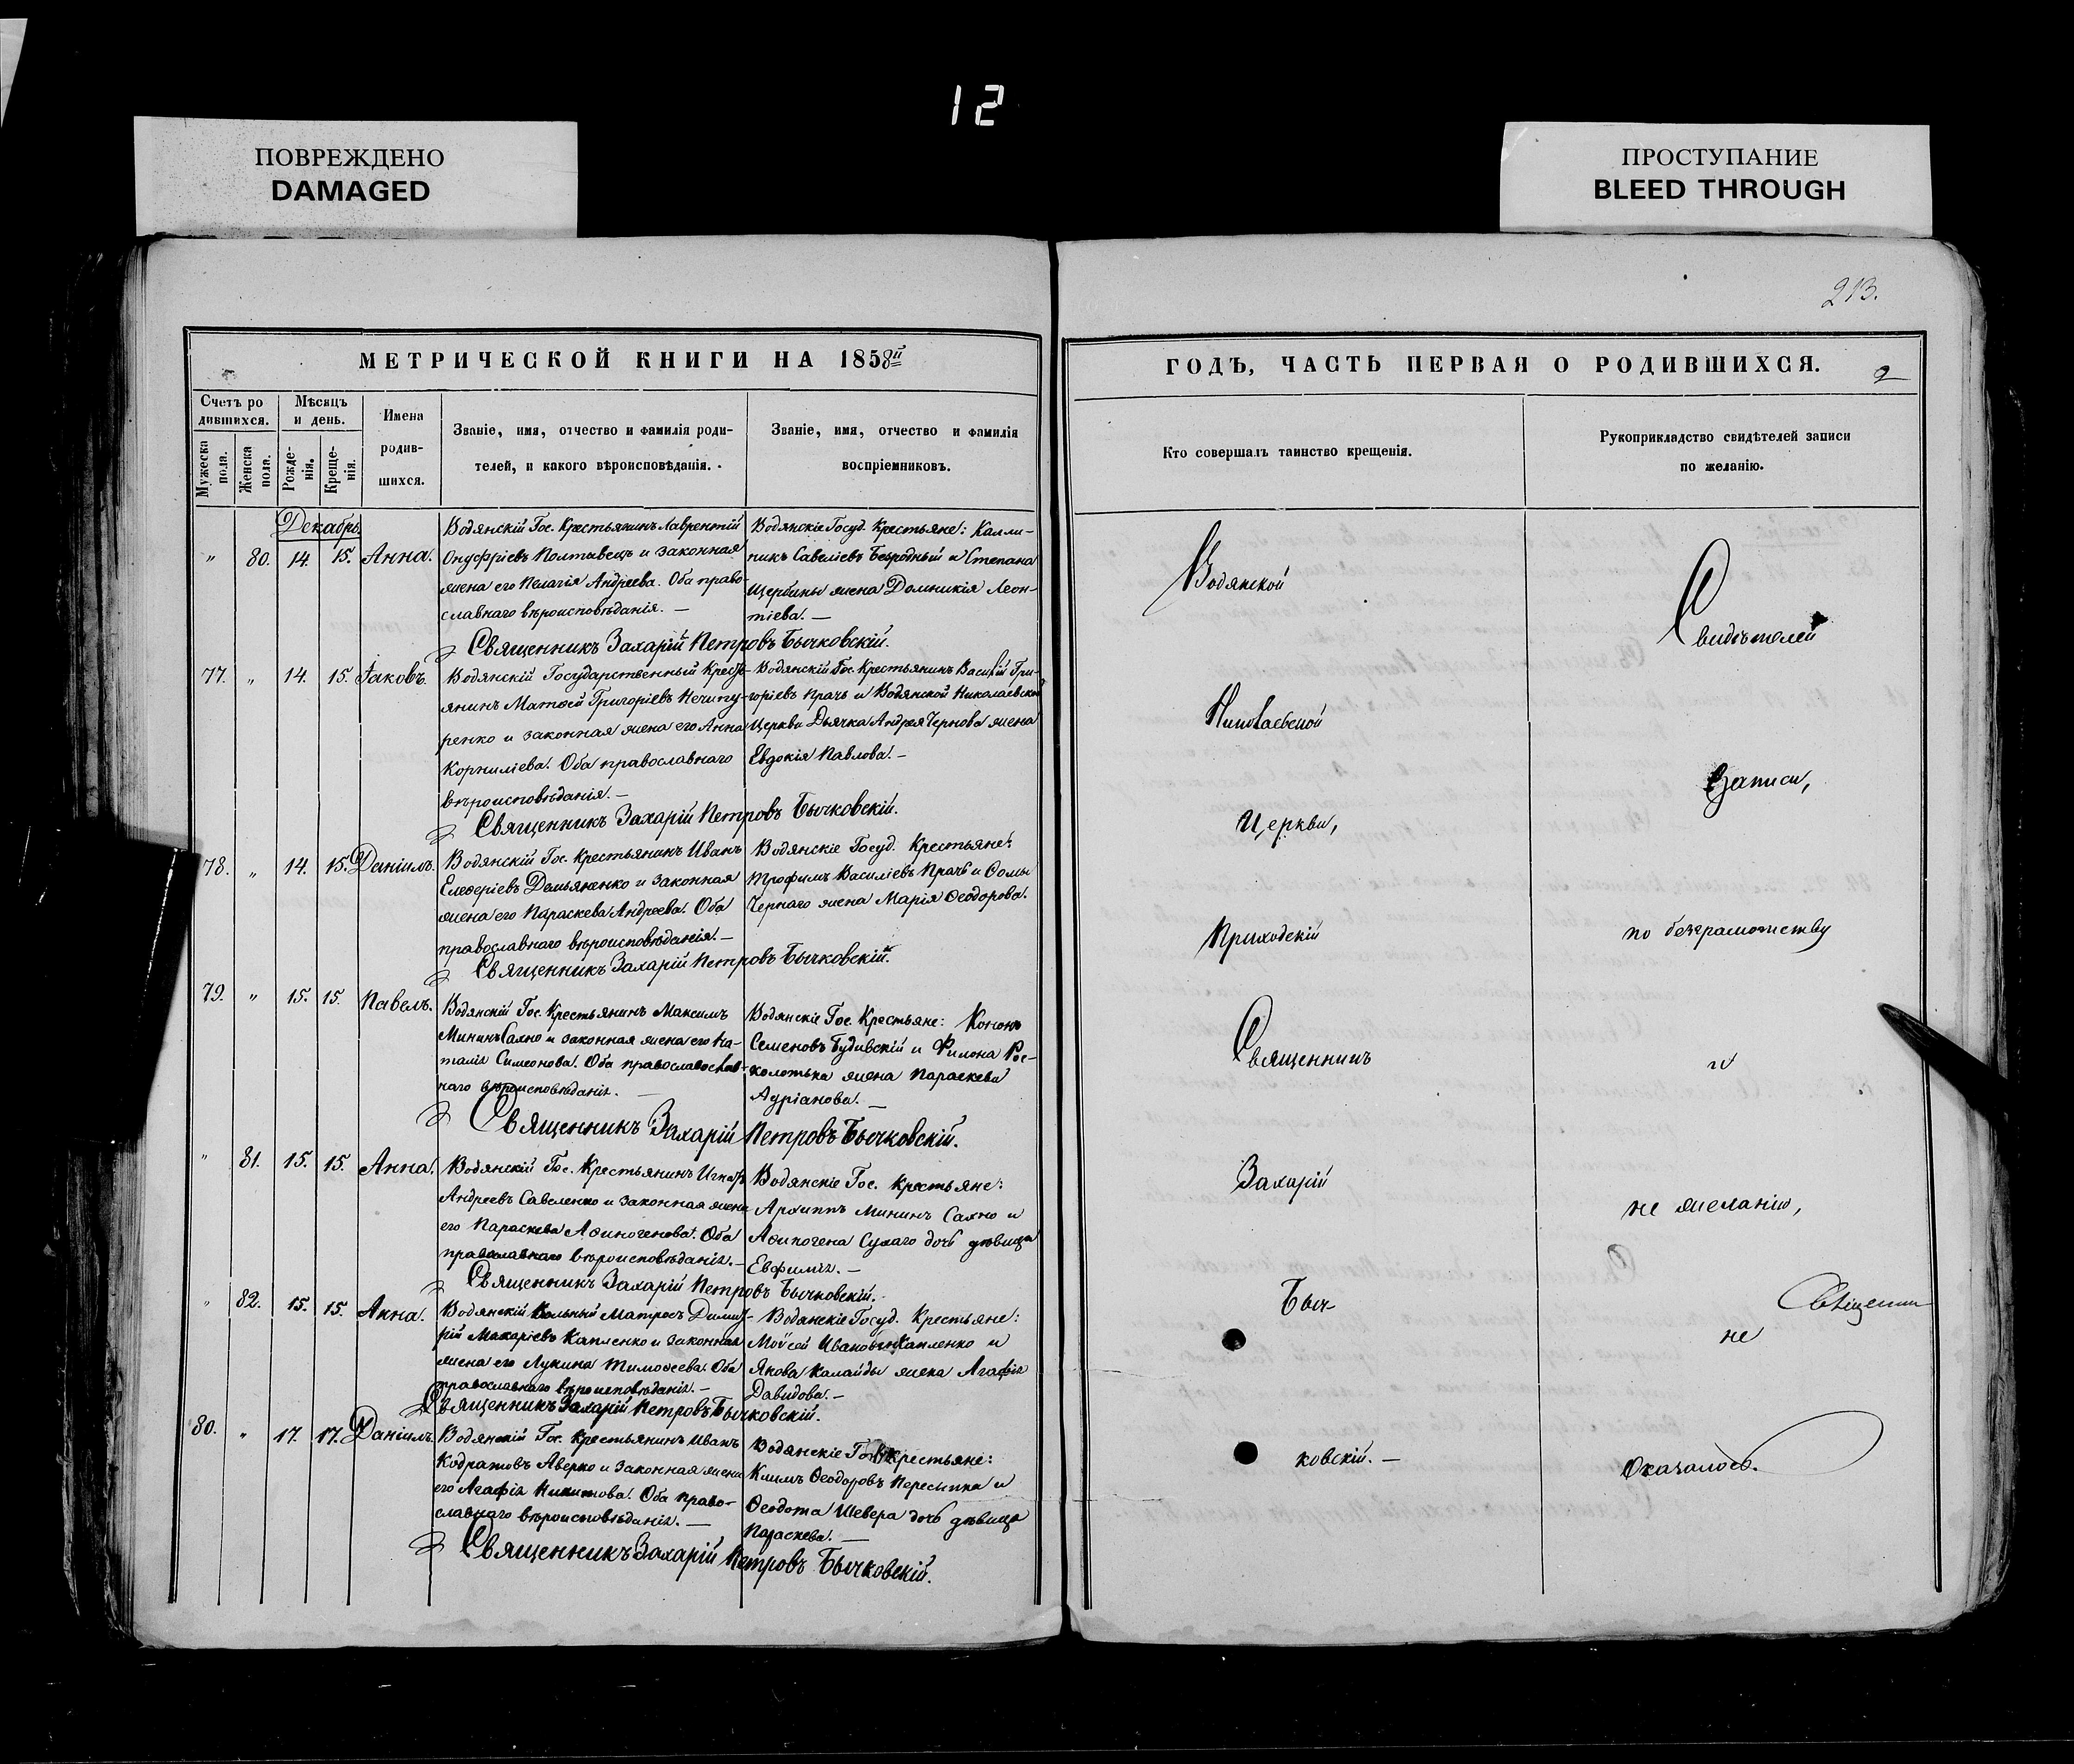 12
ПОВРЕЖДЕНО
DAMAGED
ПРОСТУПАНИЕ
BLEED THROUGH
213.
МЕТРИЧЕСКОЙ КНИГИ НА 1858й
Счетъ ро
дившихся.
Мужеска
пола.
Женска
пола.
Мѣсяцъ
и день.
Рожде-
нія.
Креще-
нія.
Имена
родив-
шихся.
Званіе, имя, отчество и фамилія роди-
телей, и какого вѣроисповѣданія.
Званіе, имя, отчество и фамилія
воспріемниковъ.
Декабрь
" 80. 14. 15. Анна.
Водянскій Гос. Крестьянинъ Лаврентій
Онуфріевъ Полтавецъ и законная
жена его Пелагія Андреева. Оба право-
славнаго вѣроисповѣданія. —
Водянскіе Госуд. Крестьяне: Калли-
никъ Савеліевъ Безродный и Степана
Щербины жена Домникія Леон-
тіева. —
Священникъ Захарій Петровъ Бычковскій.
77. " 14. 15. Іаковъ.
Водянскій Государственный Кресть-
янинъ Матѳей Григоріевъ Нечипу-
ренко и законная жена его Анна
Корниліева. Оба православнаго
вѣроисповѣданія. —
Водянскій Гос. Крестьянинъ Василій Гри-
горіевъ Прачъ и Водянской Николаевской
Церкви Дьячка Андрея Чернова жена
Евдокія Павлова. —
Священникъ Захарій Петровъ Бычковскій.
78. " 14. 15. Даніилъ.
Водянскій Гос. Крестьянинъ Иванъ
Елеѳеріевъ Демьяненко и законная
жена его Параскева Андреева. Оба
православнаго вѣроисповѣданія. —
Водянскіе Госуд. Крестьяне:
Трофимъ Василіевъ Прачъ и Ѳомы
Чернаго жена Марія Ѳеодорова.
Священникъ Захарій Петровъ Бычковскій.
79. " 15. 15. Павелъ.
Водянскій Гос. Крестьянинъ Максимъ
Мининъ Сахно и законная жена его На-
талія Симеонова. Оба православ-
наго вѣроисповѣданія. —
Водянскіе Гос. Крестьяне: Кононъ
Семеновъ Будивскій и Филона Рос-
колотька жена Параскева
Адріанова. —
Священникъ Захарій Петровъ Бычковскій.
" 81. 15. 15. Анна.
Водянскій Гос. Крестьянинъ Игнатъ
Андреевъ Савеленко и законная жена
его Параскева Аѳиногенова. Оба
православнаго вѣроисповѣданія. —
Водянскіе Гос. Крестьяне:
Архиппъ Мининъ Сахно и
Аѳиногена Сухаго дочь дѣвица
Евфимія. —
Священникъ Захарій Петровъ Бычковскій.
" 82. 15. 15. Анна.
Водянскій Вольный Матросъ Димит-
рій Макаріевъ Капленко и законная
жена его Лукина Тимоѳеева. Оба
православнаго вѣроисповѣданія. —
Водянскіе Госуд. Крестьяне:
Моѵсей Ивановъ Капленко и
Якова Калайды жена Агафія
Давидова. —
Священникъ Захарій Петровъ Бычковскій.
80. " 17. 17. Даніилъ.
Водянскій Гос. Крестьянинъ Иванъ
Кодратовъ Аверко и законная жена
его Агафія Никитова. Оба право-
славнаго вѣроисповѣданія. —
Водянскіе Гос. Крестьяне:
Климъ Ѳеодоровъ Пересыпка и
Ѳеодота Шевера дочь дѣвица
Параскева. —
Священникъ Захарій Петровъ Бычковскій.
ГОДЪ, ЧАСТЬ ПЕРВАЯ О РОДИВШИХСЯ.
2
Кто совершалъ таинство крещенія.
Рукоприкладство свидѣтелей записи
по желанію.
Водянской
Николаевской
Церкви,
Приходскій
Священникъ
Захарій
Быч-
ковскій. —
Свидѣтелей
записи,
по безграмотству
и
не желанію,
не
Оказалось.